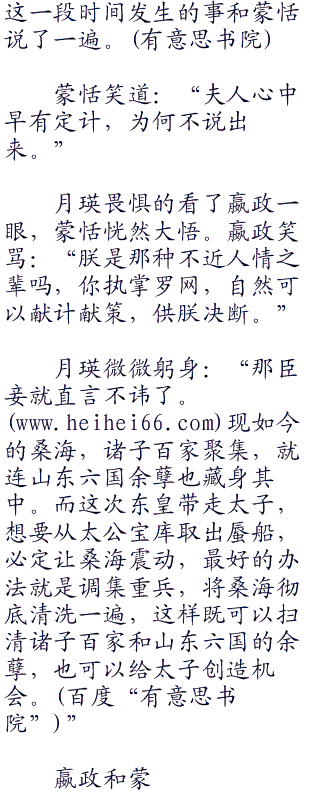 这一段时间发生的事和蒙恬
说了一遍。(有意思书院)
蒙恬笑道：“夫人心中
早有定计，为何不说出
来。”
月瑛畏惧的看了嬴政一
眼，蒙恬恍然大悟。嬴政笑
骂：“朕是那种不近人情之
辈吗，你执掌罗网，自然可
以献计献策，供朕决断。”
月瑛微微躬身：“那臣
妾就直言不讳了。
(www.heihei66.com)现如今
的桑海，诸子百家聚集，就
连山东六国余孽也藏身其
中。而这次东皇带走太子，
想要从太公宝库取出蜃船，
必定让桑海震动，最好的办
法就是调集重兵，将桑海彻
底清洗一遍，这样既可以扫
清诸子百家和山东六国的余
孽，也可以给太子创造机
会。(百度“有意思书
院”)”
嬴政和蒙